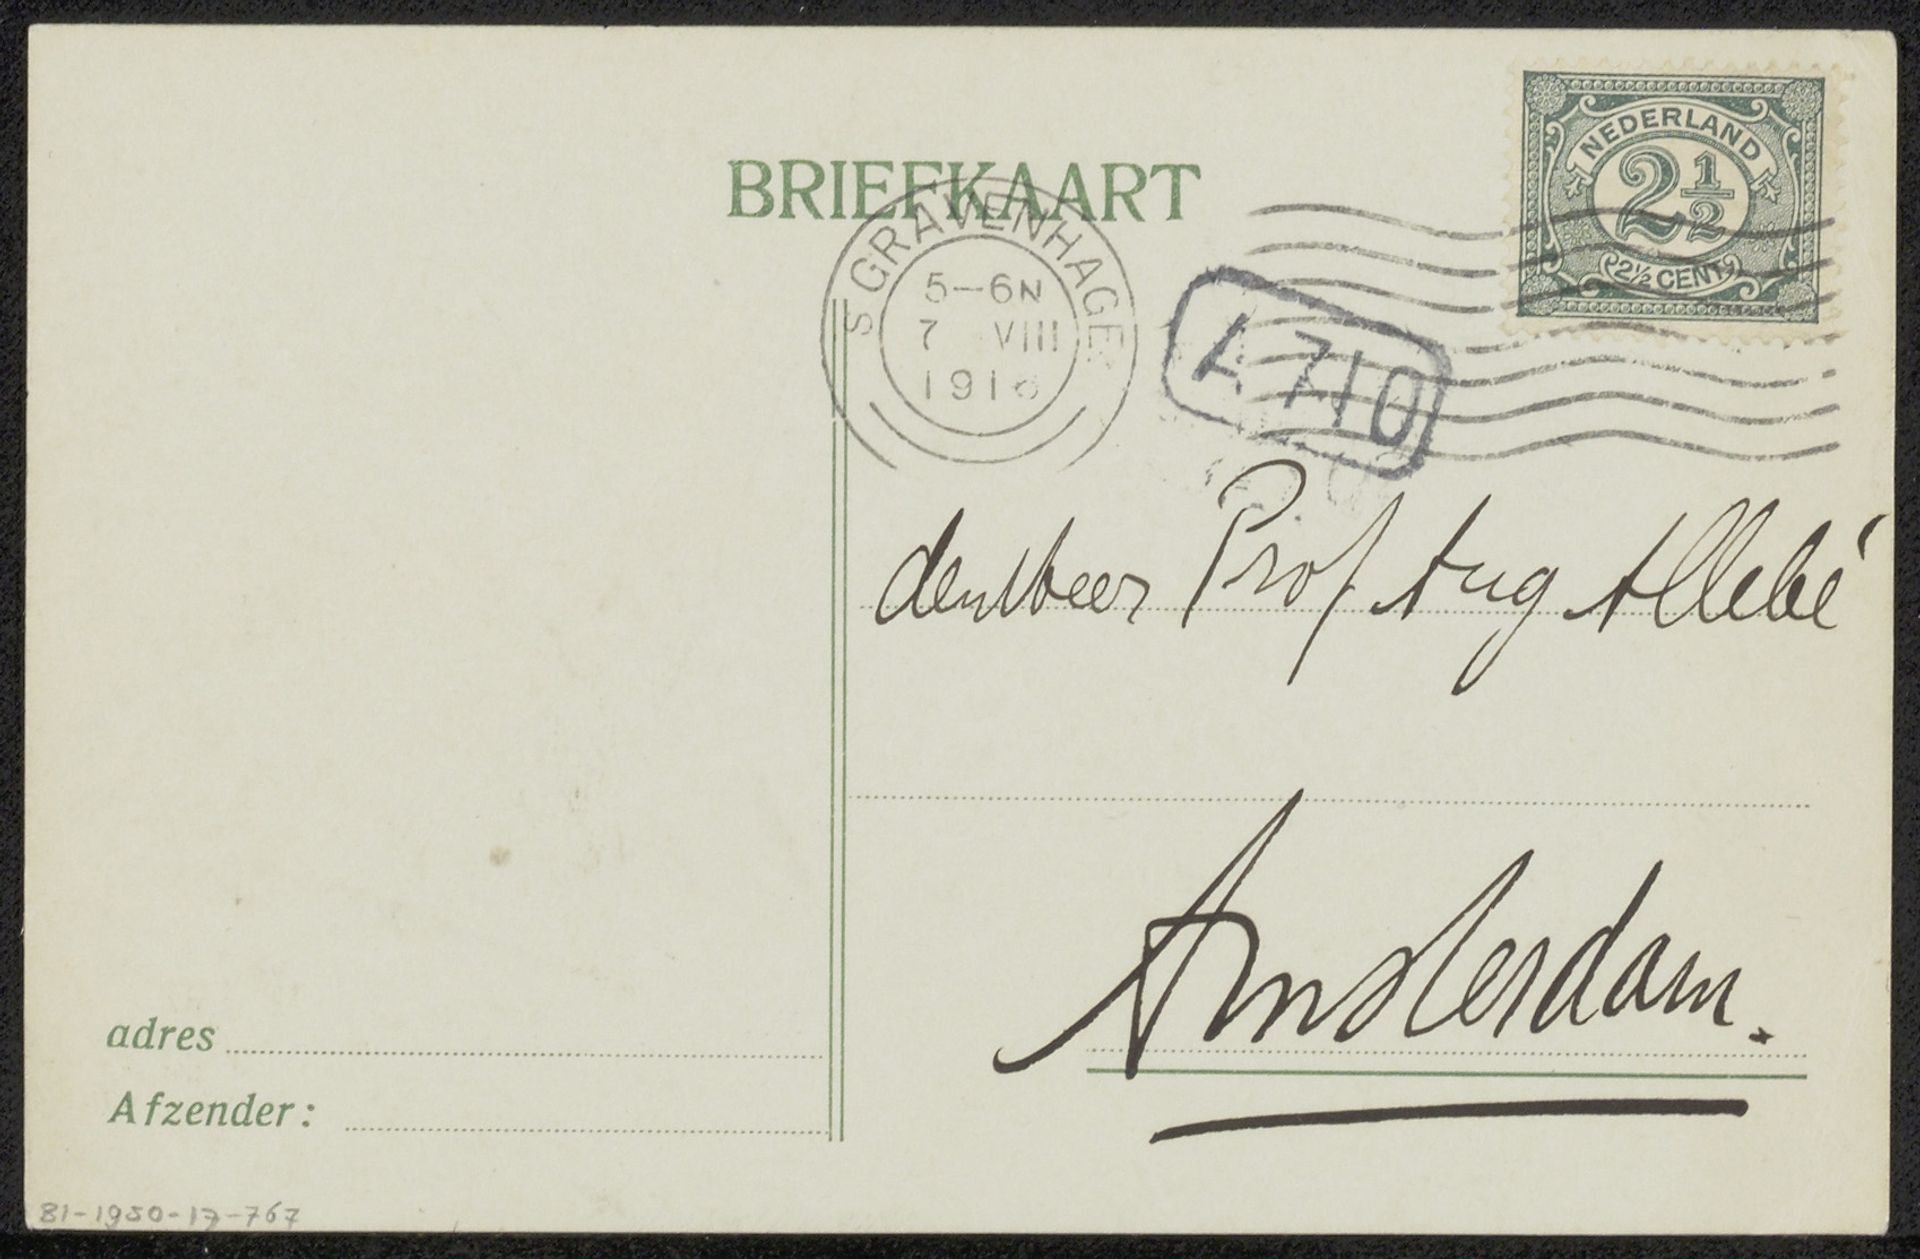 BRIEFKAART
NEDERLAND
2½
2½ CENT
S GRAVENHAGE
5-6N
7 VIII
191
A 710
den Heer Prof Aug Allebé
Amsterdam.
adres
Afzender:
BI-1950-17-767